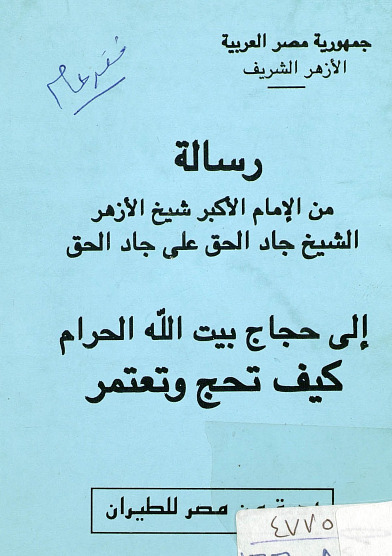 جمهورية مصر العربية
الأزهر الشريف
فقه عام
رسالة
من الإمام الأكبر شيخ الأزهر
الشيخ جاد الحق على جاد الحق
إلى حجاج بيت الله الحرام
كيف تحج وتعتمر
من مصر للطيران
٤٧٧٥